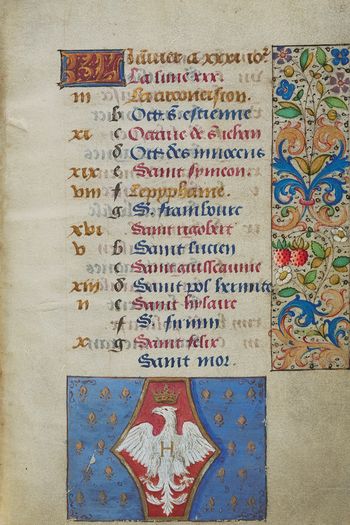 KL Januier a xxxi ior
La lune xxx.
iii La circoncision.
b Oct. s. estienne
xi c Octaue de s. iehan
d Oct. des innocens
xix e Saint symeon.
viii f Lepyphanie.
g S. frambourt
xvi Saint rigobert
v b Saint lucien
c Saint guilleaume
xiii d Saint pol hermite
ii e Saint hylaire
f S. firmin
x g Saint felix
Saint mor.
H